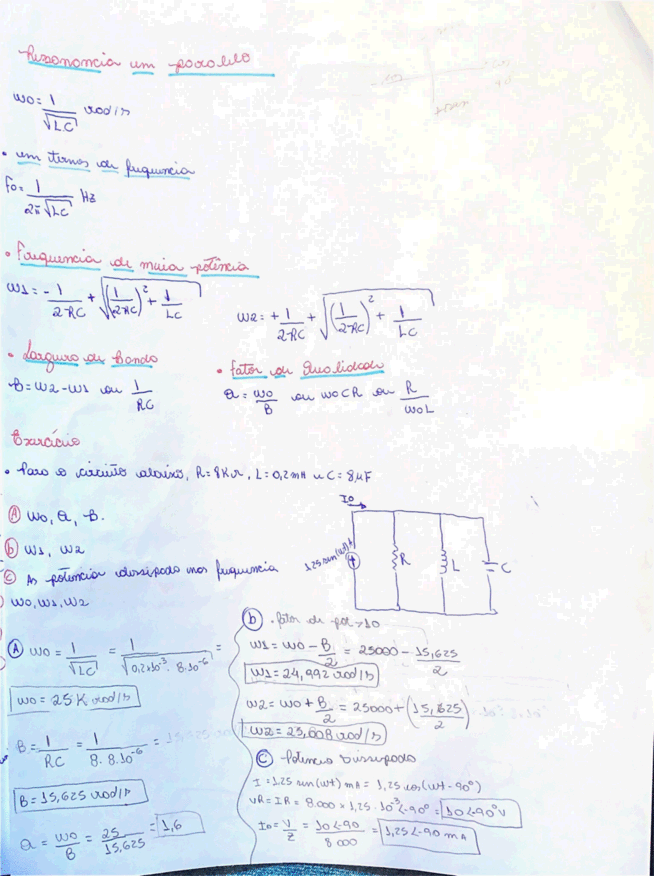 Ressonância em paralelo
ω0 = 1/√LC rad/s
• em termos de frequência
F0 = 1/2π√LC Hz
• Frequência de meia potência
ω1 = -1/2RC + √((1/2RC)² + 1/LC)
ω2 = +1/2RC + √((1/2RC)² + 1/LC)
• Largura de Banda
• Fator de Qualidade
B = ω2 - ω1 ou 1/RC
Q = ω0/B ou ω0CR ou R/ω0L
Exercício
• Para o circuito abaixo, R = 8KΩ, L = 0,2mH e C = 8μF
I0
1,25 sen(ωt) A
R
L
C
A ω0, Q, B.
b ω1, ω2
C As potencia dissipada nas frequencia
ω0, ω1, ω2
A ω0 = 1/√LC = 1/√0,2x10⁻³ · 8·10⁻⁶ =
ω0 = 25 K rad/s
B = 1/RC = 1/8·8·10⁻⁶ =
B = 15,625 rad/s
Q = ω0/B = 25/15,625 = 1,6
b • fator de >10
ω1 = ω0 - B/2 = 25000 - 15,625/2
ω1 = 24,992 rad/s
ω2 = ω0 + B/2 = 25000 + (15,625/2)
ω2 = 25,008 rad/s
C - Potencia Dissipada
I = 1,25 sen(ωt) mA = 1,25 cos(ωt - 90°)
VR = IR = 8.000 x 1,25 · 10⁻³ ∠-90° = 10∠-90° V
I0 = V/Z = 10∠-90/8000 = 1,25∠-90 mA